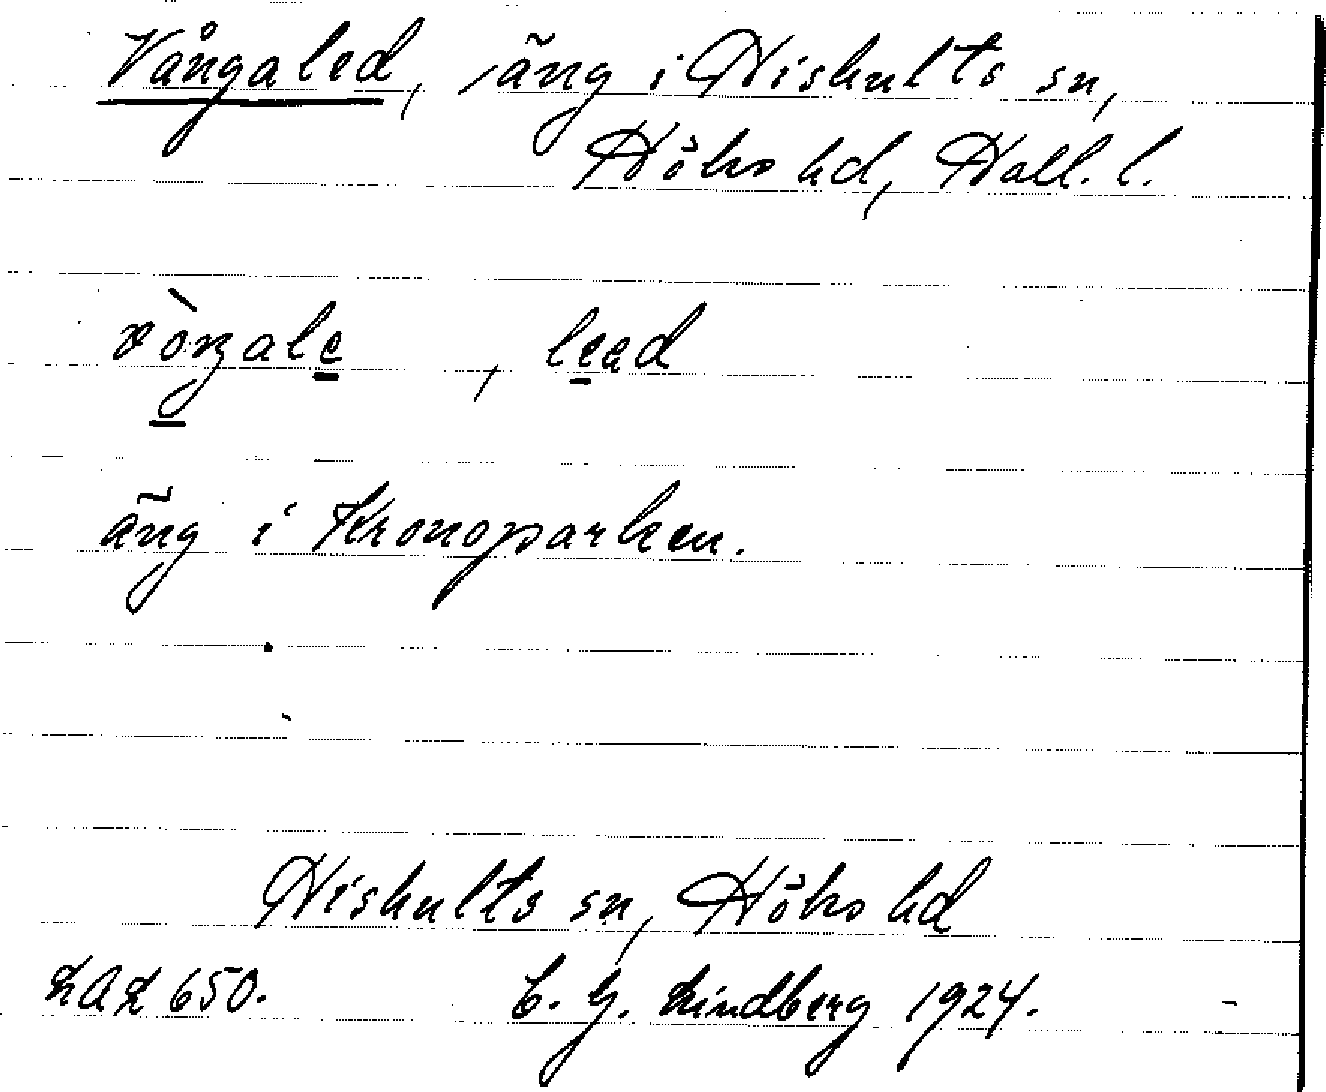 Vångaled, äng i Hishults sn,
Höks hd, Hall. l.
vòŋale, lead
äng i Kronoparken.
Hishults sn, Höks hd
LAL 650. C. G. Lindberg 1924.